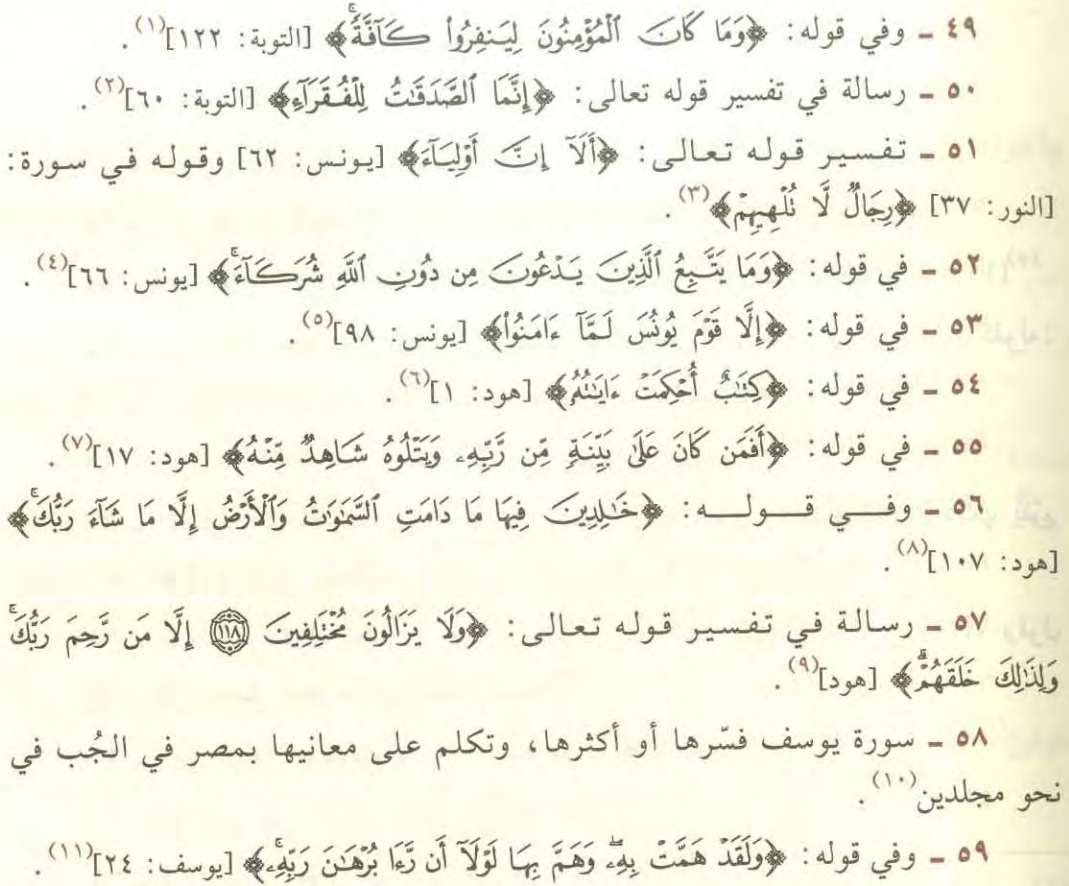 ٤٩ ـ وفي قوله: ﴿وَمَا كَانَ ٱلْمُؤْمِنُونَ لِيَنفِرُوا۟ كَآفَّةً ۚ﴾ [التوبة: ١٢٢](١).
٥٠ ـ رسالة في تفسير قوله تعالى: ﴿إِنَّمَا ٱلصَّدَقَٰتُ لِلْفُقَرَآءِ﴾ [التوبة: ٦٠](٢).
٥١ ـ تفسير قوله تعالى: ﴿أَلَآ إِنَّ أَوْلِيَآءَ﴾ [يونس: ٦٢] وقوله في سورة:
[النور: ٣٧] ﴿رِجَالٌ لَّا تُلْهِيهِمْ﴾(٣).
٥٢ ـ في قوله: ﴿وَمَا يَتَّبِعُ ٱلَّذِينَ يَدْعُونَ مِن دُونِ ٱللَّهِ شُرَكَآءَ ۚ﴾ [يونس: ٦٦](٤).
٥٣ ـ في قوله: ﴿إِلَّا قَوْمَ يُونُسَ لَمَّآ ءَامَنُوا۟﴾ [يونس: ٩٨](٥).
٥٤ ـ في قوله: ﴿كِتَٰبٌ أُحْكِمَتْ ءَايَٰتُهُۥ﴾ [هود: ١](٦).
٥٥ ـ في قوله: ﴿أَفَمَن كَانَ عَلَىٰ بَيِّنَةٍ مِّن رَّبِّهِۦ وَيَتْلُوهُ شَاهِدٌ مِّنْهُ﴾ [هود: ١٧](٧).
٥٦ ـ وفي قوله: ﴿خَٰلِدِينَ فِيهَا مَا دَامَتِ ٱلسَّمَٰوَٰتُ وَٱلْأَرْضُ إِلَّا مَا شَآءَ رَبُّكَ ۚ﴾
[هود: ١٠٧](٨).
٥٧ ـ رسالة في تفسير قوله تعالى: ﴿وَلَا يَزَالُونَ مُخْتَلِفِينَ ۝١١٨ إِلَّا مَن رَّحِمَ رَبُّكَ ۚ
وَلِذَٰلِكَ خَلَقَهُمْ ۗ﴾ [هود](٩).
٥٨ ـ سورة يوسف فسّرها أو أكثرها، وتكلم على معانيها بمصر في الجُب في
نحو مجلدين(١٠).
٥٩ ـ وفي قوله: ﴿وَلَقَدْ هَمَّتْ بِهِۦ ۖ وَهَمَّ بِهَا لَوْلَآ أَن رَّءَا بُرْهَٰنَ رَبِّهِۦ ۚ﴾ [يوسف: ٢٤](١١).